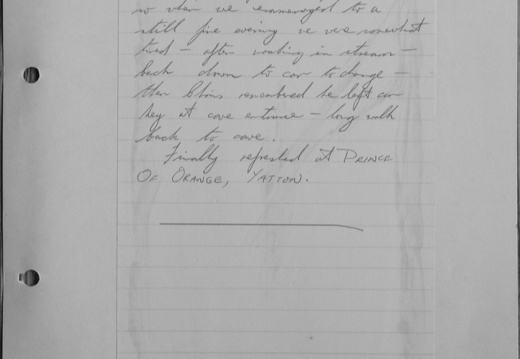 so when we emmerged to a
still fine evening we were somewhat
tired - after washing in stream -
back down to car to change -
then Chris remembered he left car
key at cave entrance - long walk
back to cave.
Finally refreshed at PRINCE
OF ORANGE, YATTON.